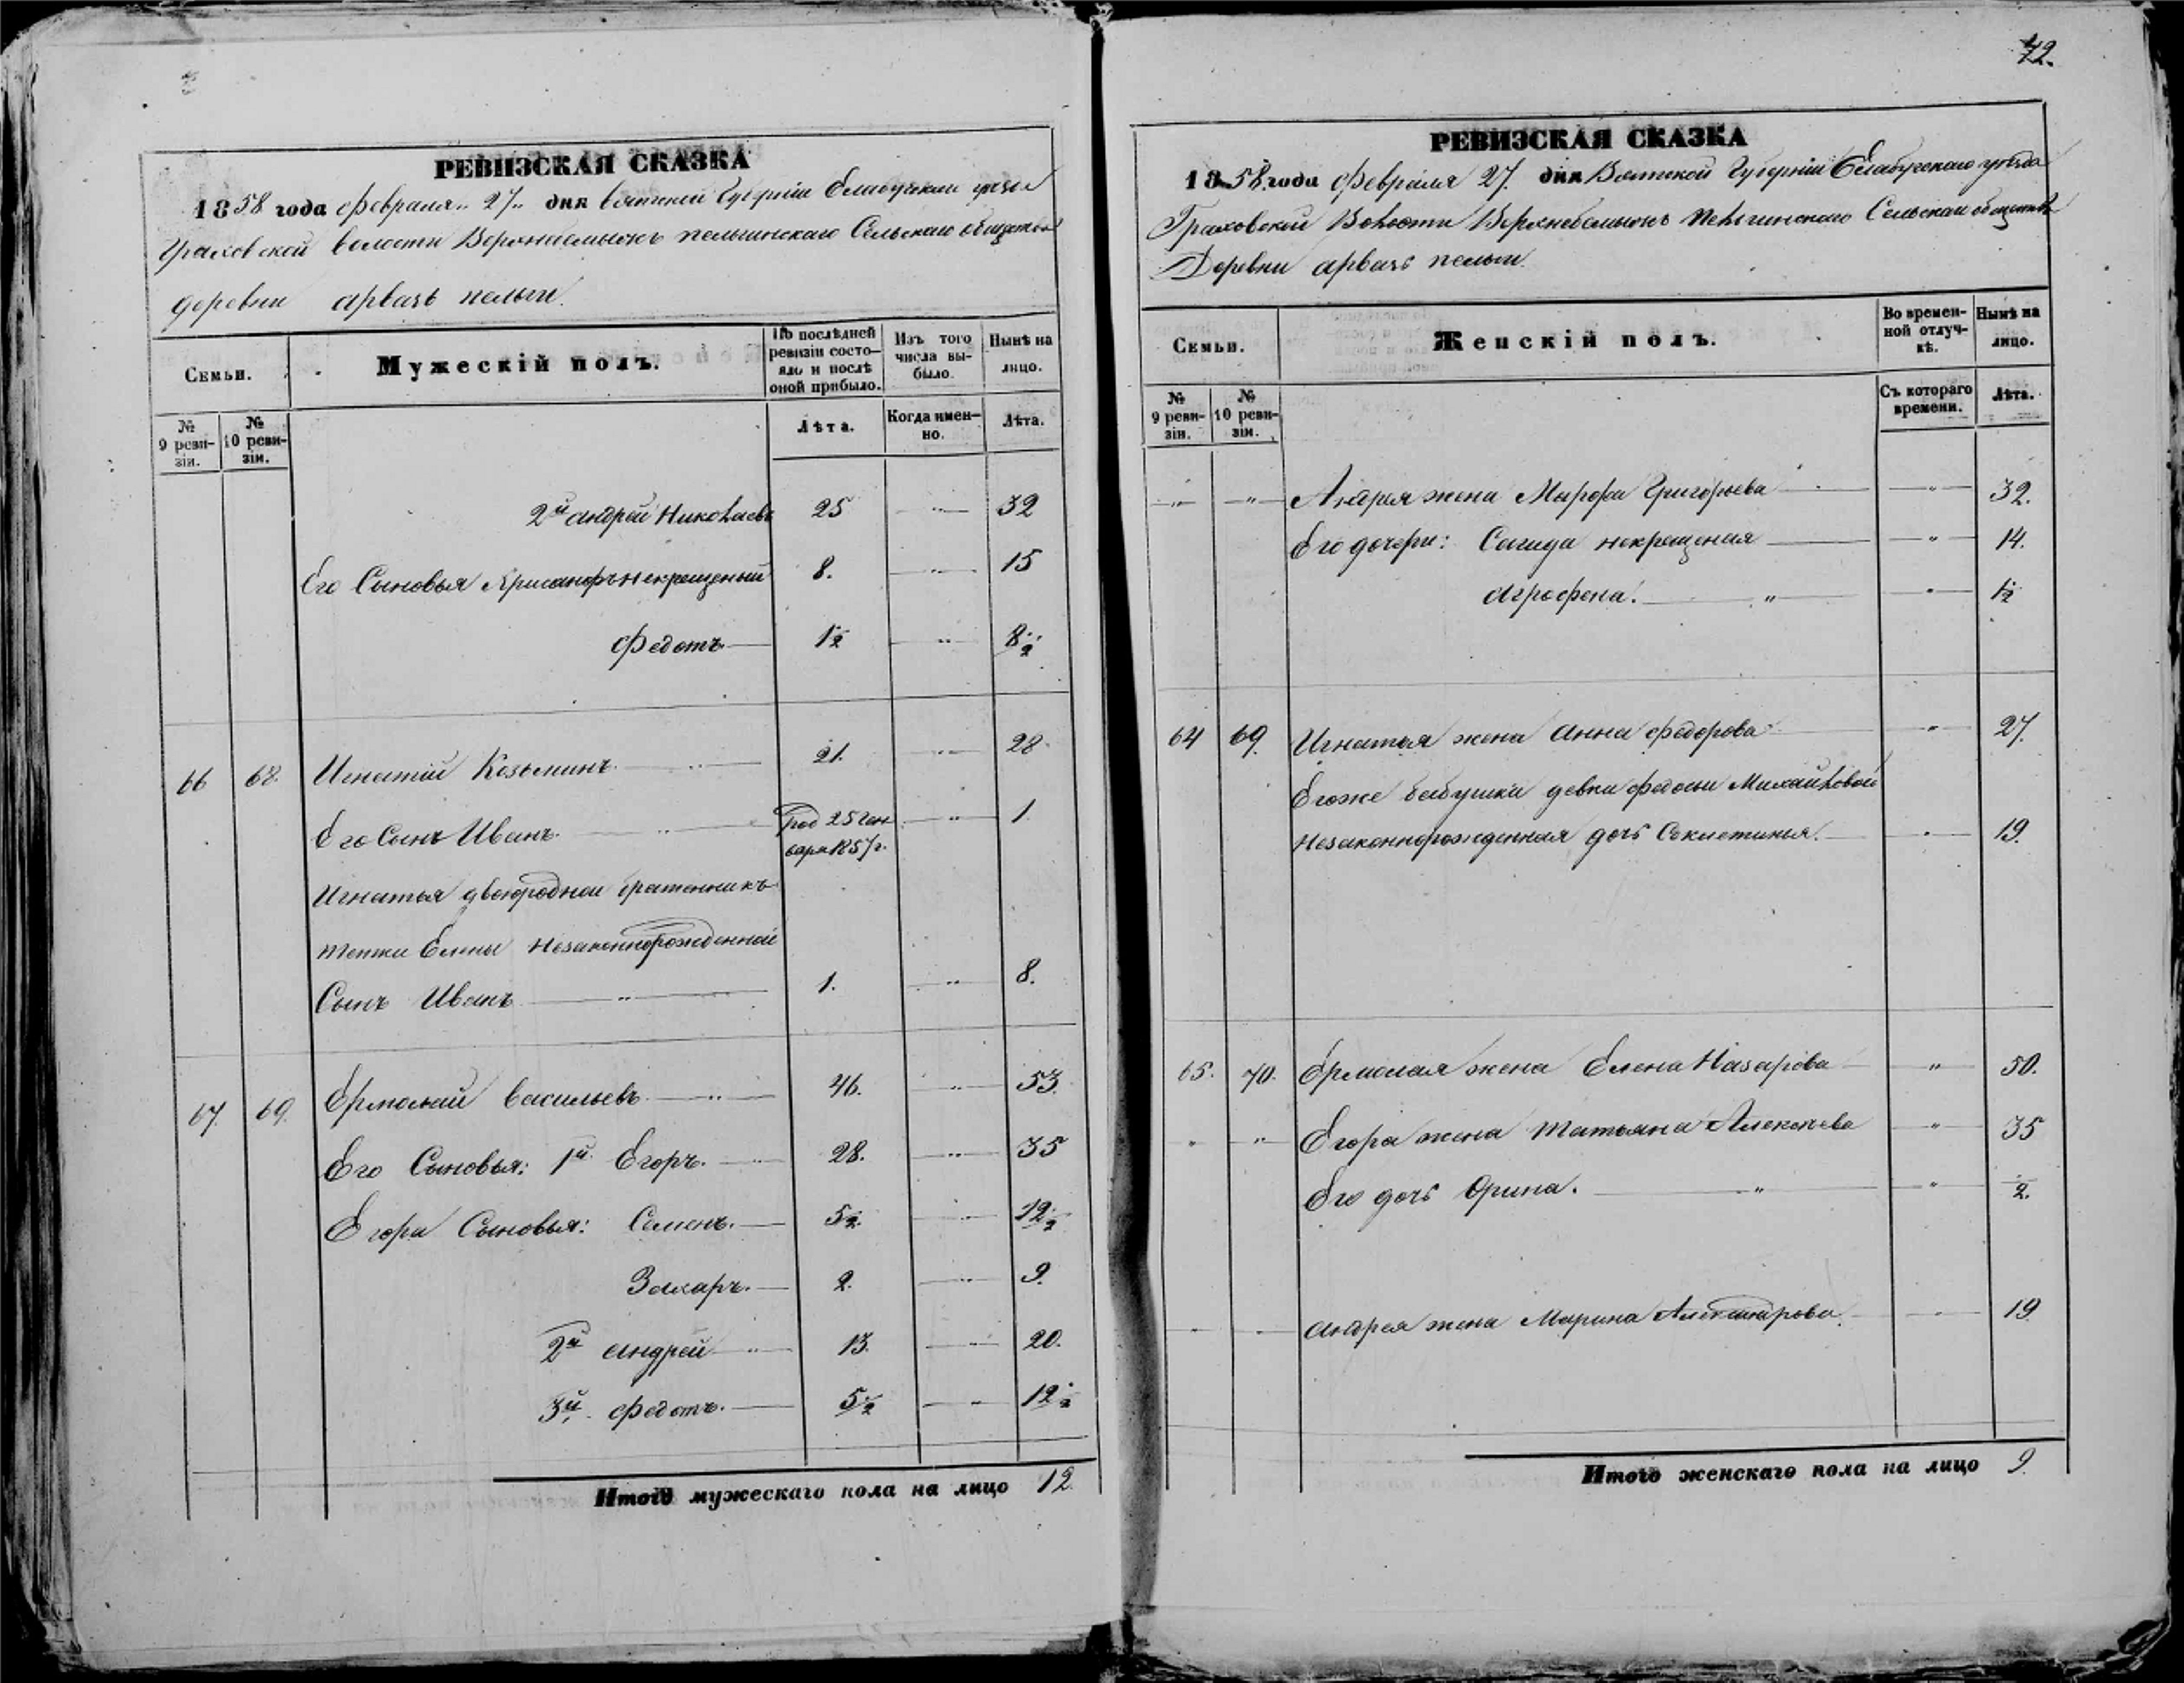 72.
РЕВИЗСКАЯ СКАЗКА
1858 года февраля 27 дня вятской Губерніи Елабужскаго уезда
Граховской волости Верхнебемыжъ пельгинскаго Сельскаго общества
деревни арвазь пельги.
Семьи. Мужескій полъ. По послѣдней ревизіи состояло и послѣ оной прибыло. Изъ того числа выбыло. Нынѣ на лицо.
№ 9 ревизіи. № 10 ревизіи. Лѣта. Когда именно. Лѣта.
2й андрей Николаевъ 25 " 32
Его Сыновья некрещеный 8. " 15
Федотъ 1/2 " 8 1/2
66 68. Игнатій Козьминъ 21. " 28
Его Сынъ Иванъ. Род 25 ген
варя 1857г. " 1
Игнатья двоюродной братенникъ
тетки Елены незаконнорожденной
Сынъ Иванъ " 1. " 8.
67. 69. Ермолай васильевъ " 46. " 53.
Его Сыновья: 1й Егоръ. 28. " 35
Егора Сыновья: Семенъ. 5 1/2. " 12 1/2
Захаръ. 2. " 9.
2й андрей " 13. " 20.
3й федотъ. 5 1/2 " 12 1/2
Итого мужескаго пола на лицо 12.
РЕВИЗСКАЯ СКАЗКА
1858 года февраля 27. дня Вятской Губерніи Елабугскаго уезда
Граховской Волости Верхнебемыжъ Пельгинскаго Сельскаго общества
Деревни арвазь пельги.
Семьи. Женскій полъ. Во временной отлучкѣ. Нынѣ на лицо.
№ 9 ревизіи. № 10 ревизіи. Съ котораго времени. Лѣта.
" " Андрея жена Марфа Григорьева " 32.
Его дочери: Сагида некрещеная " 14.
Агрофена. " " 1/2
64 69. Игнатья жена Анна федорова " 27.
Егоже бабушки девки федосьи Михайловой
Незаконнорожденная дочь Секлетинья. " 19.
65. 70. Ермолая жена Елена Назарова " 50.
" " Егора жена татьяна Алексеева " 35
Его дочь Орина. " " 1/2.
" " андрея жена Марина Александрова. " 19
Итого женскаго пола на лицо 9.